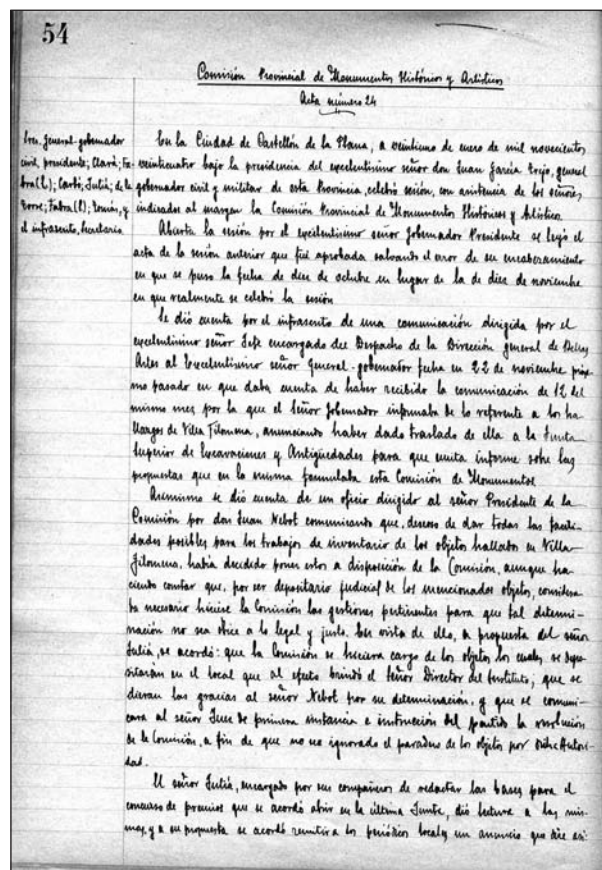 54
Comisión Provincial de Monumentos Históricos y Artísticos
Acta número 24
Sres. General-gobernador
civil, presidente; Clará; Fa-
bra (L); Carbó; Juliá; de la
Torre; Fabra (V); Tomás, y
el infrascrito, Secretario
En la Ciudad de Castellón de la Plana, a veintiuno de enero de mil novecientos
veinticuatro bajo la presidencia del excelentísimo señor don Juan García Trejo, general
gobernador civil y militar de esta Provincia, celebró sesión, con asistencia de los señores
indicados al margen la Comisión Provincial de Monumentos Históricos y Artísticos.
Abierta la sesión por el excelentísimo señor Gobernador Presidente se leyó el
acta de la sesión anterior que fué aprobada salvando el error de su encabezamiento
en que se puso la fecha de diez de octubre en lugar de la de diez de noviembre
en que realmente se celebró la sesión
Se dió cuenta por el infrascrito de una comunicación dirigida por el
excelentísimo señor Jefe encargado del Despacho de la Dirección general de Bellas
Artes al Excelentísimo señor General-gobernador fecha en 22 de noviembre próxi-
mo pasado en que daba cuenta de haber recibido la comunicación de 12 del
mismo mes por la que el Señor Gobernador informaba de lo referente a los ha-
llazgos de Villa Filomena, anunciando haber dado traslado de ella a la Junta
Superior de Excavaciones y Antigüedades para que emita informe sobre las
propuestas que en la misma formulaba esta Comisión de Monumentos
Asimismo se dió cuenta de un oficio dirigido al señor Presidente de la
Comisión por don Juan Nebot comunicando que, deseoso de dar todas las facili-
dades posibles para los trabajos de inventario de los objetos hallados en Villa
Filomena, había decidido poner estos a disposición de la Comisión, aunque ha-
ciendo constar que, por ser depositario judicial de los mencionados objetos, considera-
ba necesario hiciese la Comisión las gestiones pertinentes para que tal determi-
nación no sea óbice a lo legal y justo. En vista de ello, a propuesta del señor
Juliá, se acordó: que la Comisión se hiciera cargo de los objetos los cuales se depo-
sitarían en el local que al efecto brindó el Señor Director del Instituto; que se
dieran las gracias al señor Nebot por su determinación, y que se comuni-
cara al señor Juez de primera instancia e instrucción del partido la resolución
de la Comisión, a fin de que no sea ignorado el paradero de los objetos por dicha Autori-
dad.
El señor Juliá, encargado por sus compañeros de redactar las bases para el
concurso de premios que se acordó abrir en la última Junta, dió lectura a las mis-
mas, y a su propuesta se acordó remitir a los periódicos locales un anuncio que dice así: